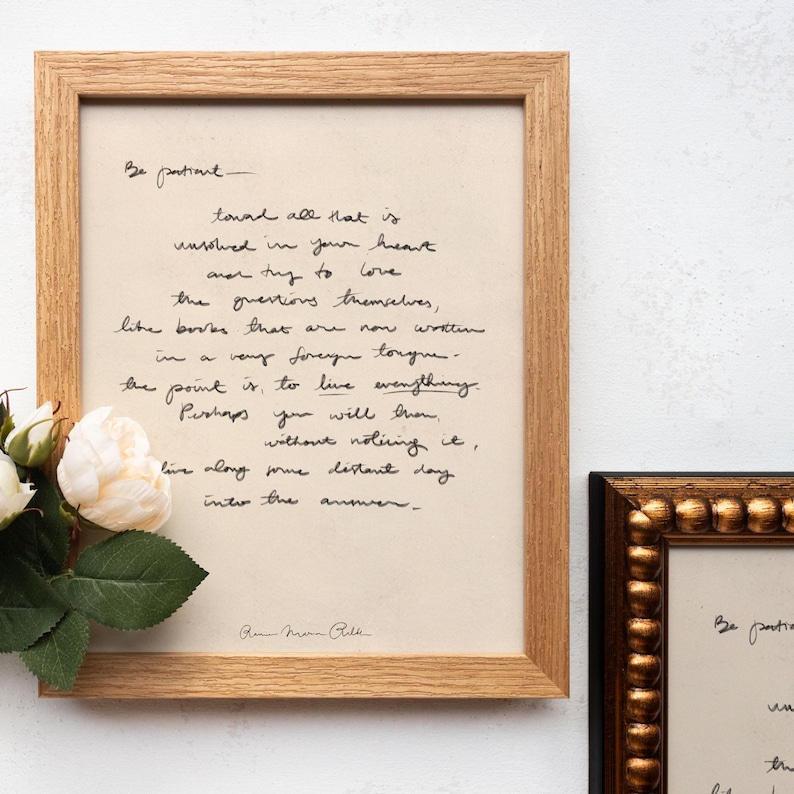 Be patient—
toward all that is
unsolved in your heart
and try to love
the questions themselves,
like books that are now written
in a very foreign tongue-
the point is, to live everything.
Perhaps you will then,
without noticing it,
live along some distant day
into the answer.
Rainer Maria Rilke
Be patie
un
th
like b